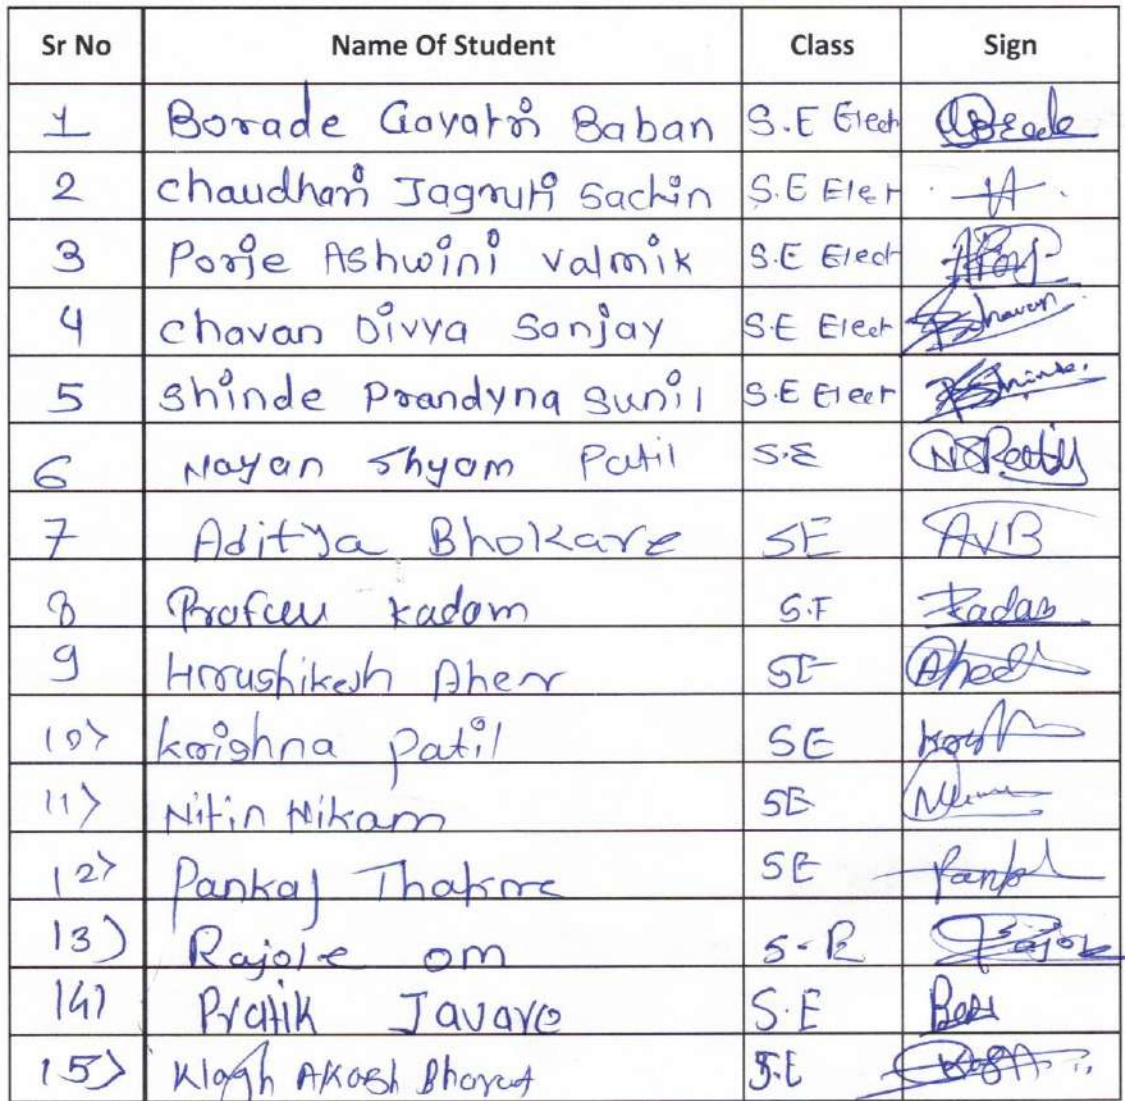 Sr No Name Of Student Class Sign
1 Borade Gayatri Baban S.E Elect
2 chaudhari Jagruti Sachin S.E Elect
3 Porje Ashwini valmik S.E Elect
4 chavan Divya Sanjay S.E Elect Chavan
5 Shinde Prandyna Sunil S.E Elect Shinde
6 Nayan Shyam Patil S.E
7 Aditya Bhokare SE AVB
8 kadam S.E
9 Hrrushikesh Aher SE
10> krishna Patil SE
11> Nitin Nikam SE
12> Pankaj Thakre SE
13) Rajole om S-E Rajole
14) Pratik Javare S.E
15> Akash Bharat S.E